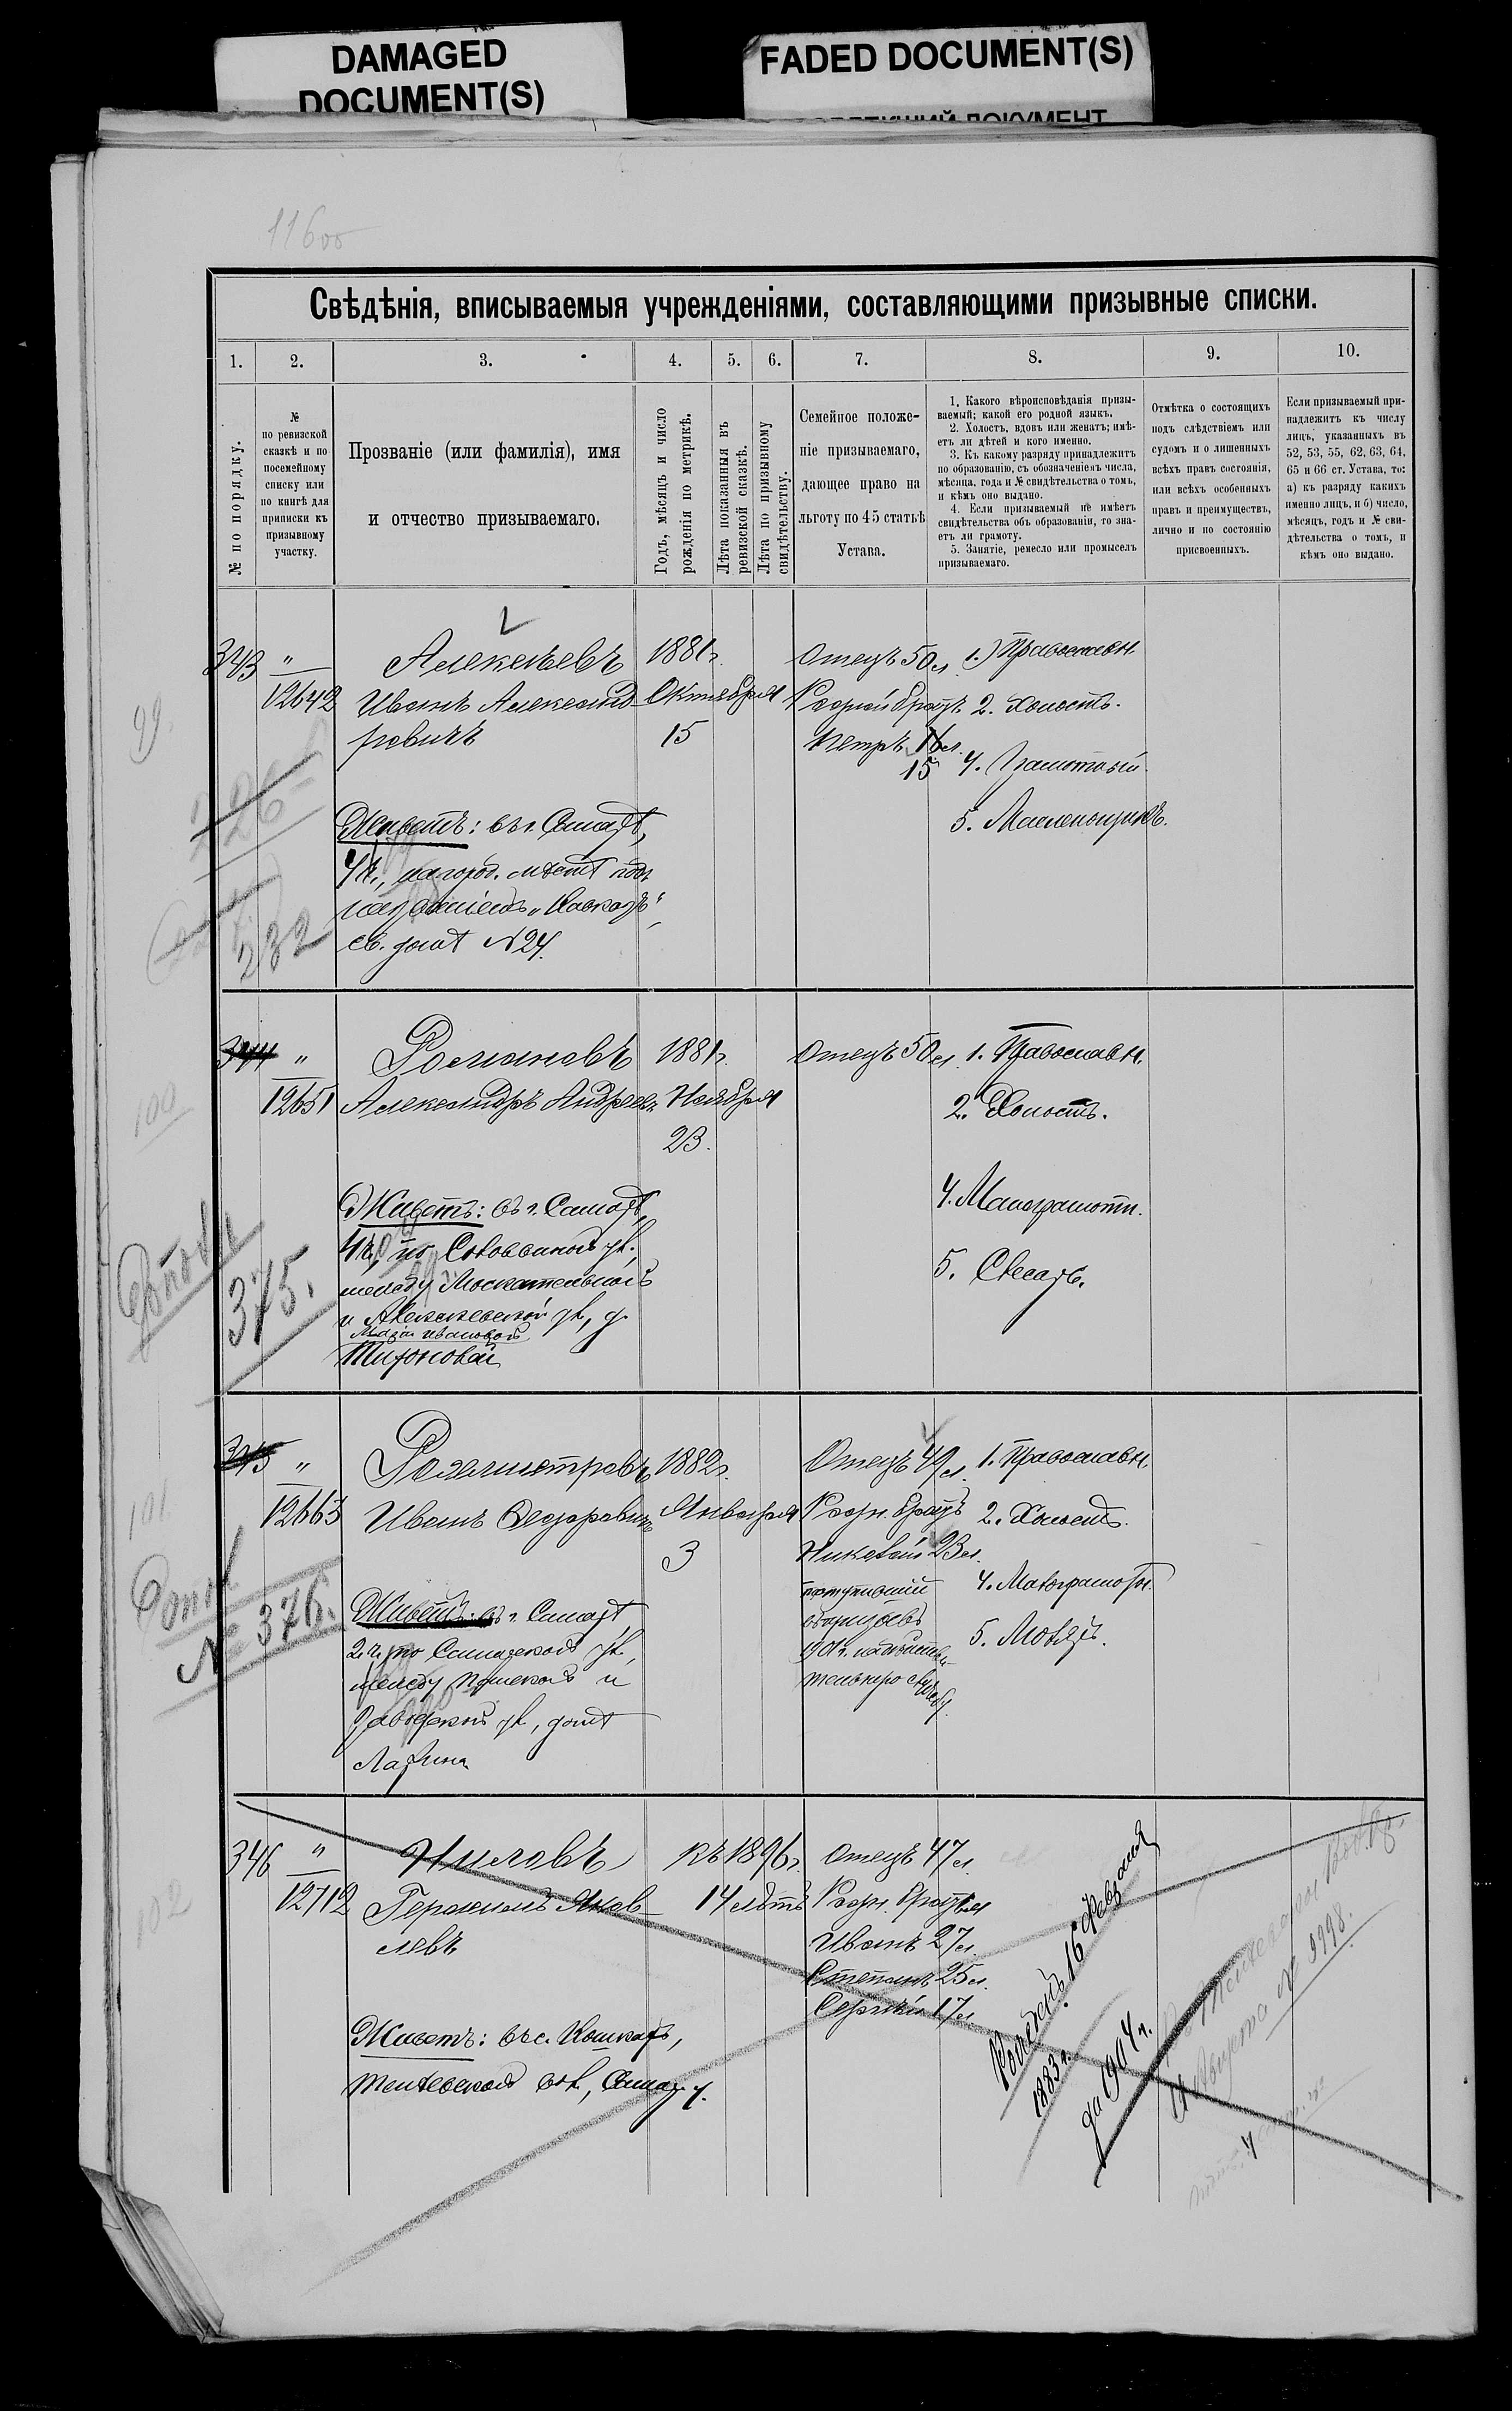 DAMAGED
DOCUMENT(S)
FADED DOCUMENT(S)
ДОКУМЕНТ
11600
Свѣдѣнія, вписываемыя учрежденіями, составляющими призывные списки.
1. 2. 3. 4. 5. 6. 7. 8. 9. 10.
№ по порядку.
№
по ревизской
сказкѣ и по
посемейному
списку или
по книгѣ для
приписки къ
призывному
участку.
Прозваніе (или фамилія), имя
и отчество призываемаго.
Годъ, мѣсяцъ и число
рожденія по метрикѣ.
Лѣта показанныя въ
ревизской сказкѣ.
Лѣта по призывному
свидѣтельству.
Семейное положе-
ніе призываемаго,
дающее право на
льготу по 45 статьѣ
Устава.
1. Какого вѣроисповѣданія призы-
ваемый; какой его родной языкъ.
2. Холостъ, вдовъ или женатъ; имѣ-
етъ ли дѣтей и кого именно.
3. Къ какому разряду принадлежитъ
по образованію, съ обозначеніемъ числа,
мѣсяца, года и № свидѣтельства о томъ,
и кѣмъ оно выдано.
4. Если призываемый не имѣетъ
свидѣтельства объ образованіи, то зна-
етъ ли грамоту.
5. Занятіе, ремесло или промыселъ
призываемаго.
Отмѣтка о состоящихъ
подъ слѣдствіемъ или
судомъ и о лишенныхъ
всѣхъ правъ состоянія,
или всѣхъ особенныхъ
правъ и преимуществъ,
лично и по состоянію
присвоенныхъ.
Если призываемый при-
надлежитъ къ числу
лицъ, указанныхъ въ
52, 53, 55, 62, 63, 64,
65 и 66 ст. Устава, то:
а) къ разряду какихъ
именно лицъ, и б) число,
мѣсяцъ, годъ и № сви-
дѣтельства о томъ, и
кѣмъ оно выдано.
99.
226
232
343 "
12642
Алексѣевъ
Иванъ Александ-
ровичъ
1881г.
Октября
15
Отецъ 50л.
Родной братъ
Петръ 16л.
15
1.) Православн.
2. Холостъ.
4. Грамотный.
5. Масленщикъ.
Живетъ: въ г. Самарѣ,
4ч., на город. мѣстѣ подъ
названіемъ „Кавказъ“,
св. домъ № 24.
100
375.
344 "
12651
Романовъ
Александръ Андреев.
1881г.
Ноября
23.
Отецъ 50л.
1. Православн.
2. Холостъ.
4. Малограмотн.
5. Слесарь.
Живетъ: въ г. Самарѣ,
4ч., по Соловьиной ул.,
между Москательной
и Алексѣевской ул., д.
Маріи Ивановой
Тихоновой
101
№ 376.
345 "
12663
Роялметровъ
Иванъ Федоровичъ
1882г.
Января
3
Отецъ 49л.
Родн. братъ
Николай 23л.
поступившій
въ призывъ
1901г. на дѣйстви-
тельную службу.
1. Православн.
2. Холостъ.
4. Малограмотн.
5. Маляръ.
Живетъ: въ г. Самарѣ
2ч. по Самарской ул.,
между
и
Заводской ул., домъ
Ларина
102
346 "
12712
Ниловъ
Герасимъ Яков-
левъ
Къ 1896г.
14 лѣтъ
Отецъ 47л.
Родн. братья
Иванъ 27л.
Степанъ 25л.
Сергѣй 17л.
Живетъ: въ с. Кошкахъ,
волости, Самар. у.
Рожденъ 16 Февраля
1883г.
на 1904г.
Августа № 3998.